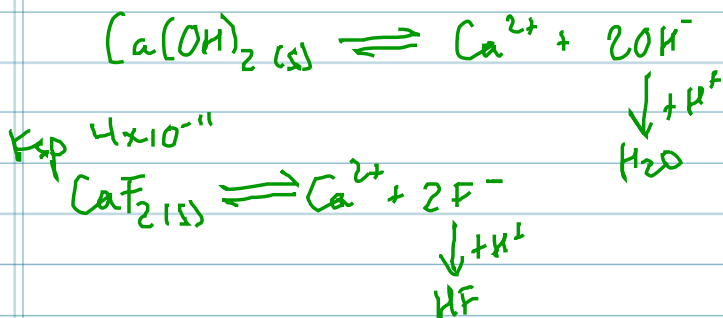 Ca(OH)₂ (s) ⇌ Ca²⁺ + 2OH⁻
↓ +H⁺
H₂O
Ksp 4×10⁻¹¹
CaF₂ (s) ⇌ Ca²⁺ + 2F⁻
↓ +H⁺
HF